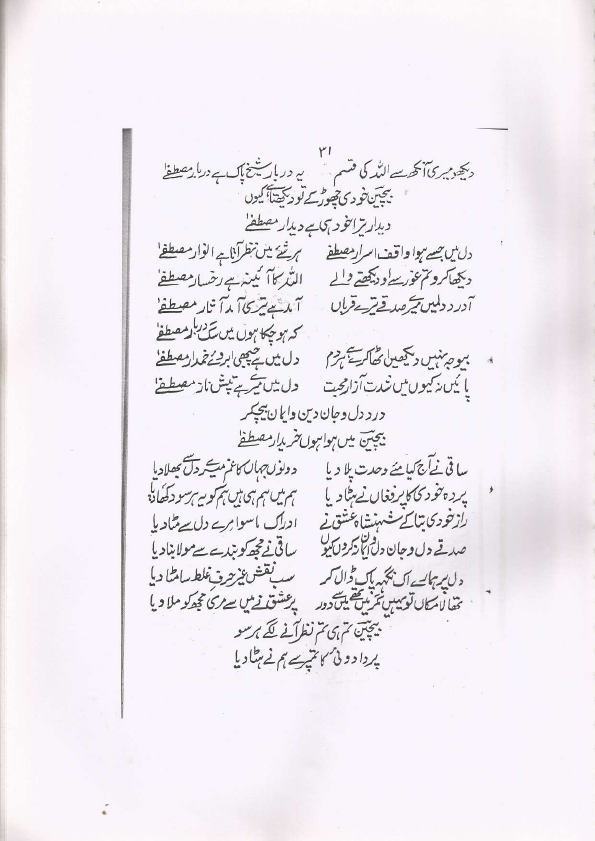 ۳۱
دیکھو میری آنکھ سے اللہ کی قسم یہ دربار شیخ پاک ہے دربار مصطفےٰ
بیچین خودی چھوڑ کے تو دیکھتا ہے کیوں
دیدار ترا خود ہی ہے دیدار مصطفےٰ
دل میں جسے ہوا واقف اسرار مصطفےٰ ہر شئے میں نظر آتا ہے انوار مصطفےٰ
دیکھا کرو تم غور سے او دیکھنے والے اللہ کا آئینہ ہے رخسار مصطفےٰ
آ درد دلمیں میرے صدقے ترے قرباں آمد ہے تیری آمد آثار مصطفےٰ
کہ ہو چکا ہوں میں سگ دربار مصطفےٰ
بیوجہ نہیں دیکھیں اٹھا کر سے ہر دم دل میں ہے چبھی ابروئے خمدار مصطفےٰ
پائیں نہ کیوں میں شدت آزار محبت دل میں میرے ہے تپش نار مصطفےٰ
درد دل و جان دین و ایمان بیچکر
بیچین میں ہوا ہوں خریدار مصطفےٰ
ساقی نے آج کیا مئے وحدت پلا دیا دونوں جہاں کا غم میرے دل سے بھلا دیا
پردہ خودی کا پیر فغاں نے ہٹا دیا ہم میں ہم ہی ہیں ہم کو یہ ہر سو دکھا دیا
راز خودی بتا کے شہنشاہ عشق نے ادراک ماسوا مرے دل سے مٹا دیا
صدقے دل و جان دل و ایمان کروں کیوں ساقی نے مجھ کو بندے سے مولا بنا دیا
دل پر ہمارے اک نگہہ پاک ڈال کر سب نقش غیر حرف غلط سا مٹا دیا
تھا لامکاں تو نہیں تم میں تھے دور پر عشق نے میں سے مری مجھ کو ملا دیا
بیچین تم ہی تم نظر آنے لگے ہر سو
پردا دوئی کا تم پرے ہم نے ہٹا دیا